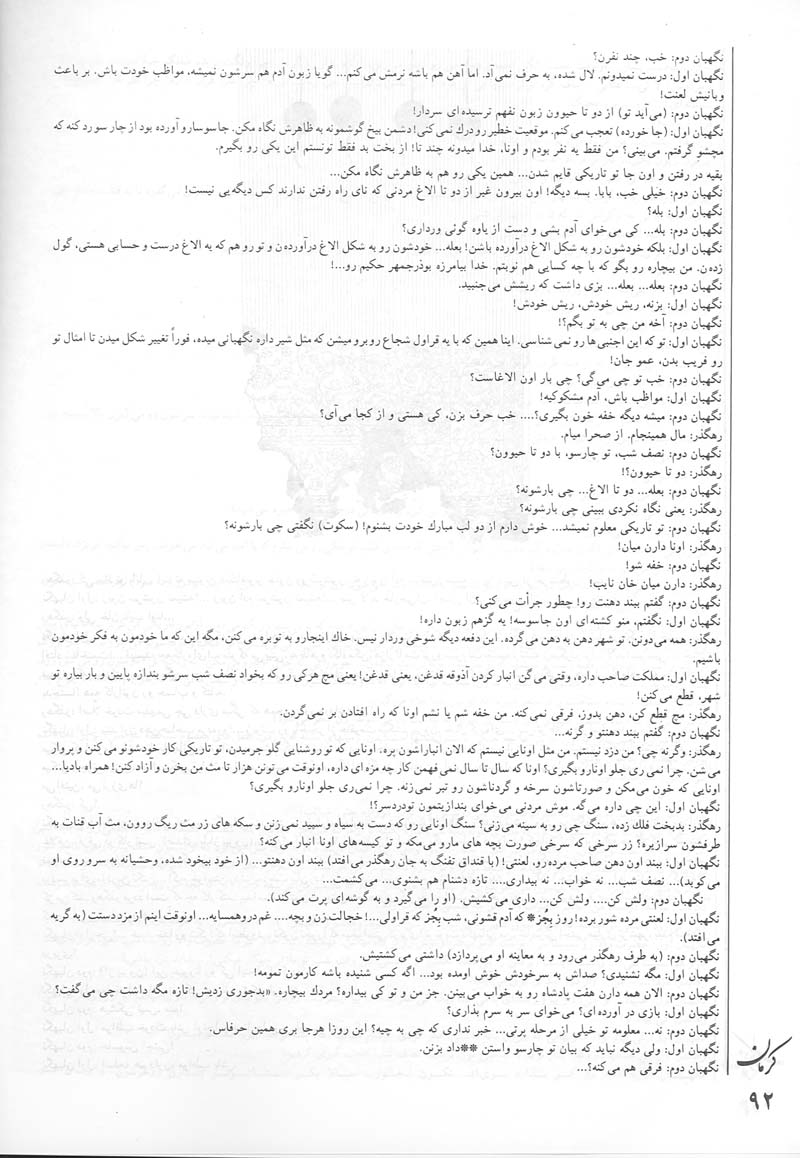 نگهبان دوم: خب، چند نفرن؟
نگهبان اول: درست نمیدونم. لال شده، به حرف نمی‌آد. اما آهن هم باشه نرمش می‌کنم... گویا زبون آدم هم سرشون نمیشه، مواظب خودت باش. بر باعث
و بانیش لعنت!
نگهبان دوم: (می‌آید تو) از دو تا حیوون زبون نفهم ترسیده‌ای سردار!
نگهبان اول: (جا خورده) تعجب می‌کنم. موقعیت خطیر رو درك نمی‌کنی! دشمن بیخ گوشمونه به ظاهرش نگاه مکن. جاسوسارو آورده بود از چار سو رد کنه که
مچشو گرفتم. می‌بینی؟ من فقط یه نفر بودم و اونا، خدا میدونه چند تا! از بخت بد فقط تونستم این یکی رو بگیرم.
بقیه در رفتن و اون جا تو تاریکی قایم شدن... همین یکی رو هم به ظاهرش نگاه مکن...
نگهبان دوم: خیلی خب، بابا. بسه دیگه! اون بیرون غیر از دو تا الاغ مردنی که نای راه رفتن ندارند کس دیگه‌یی نیست!
نگهبان اول: بله؟
نگهبان دوم: بله... کی می‌خوای آدم بشی و دست از یاوه گوئی ورداری؟
نگهبان اول: بلکه خودشون رو به شکل الاغ درآورده باشن! بعله... خودشون رو به شکل الاغ درآورده‌ن و تو رو هم که یه الاغ درست و حسابی هستی، گول
زده‌ن. من بیچاره رو بگو که با چه کسایی هم نوبتم. خدا بیامرزه بوذرجمهر حکیم رو...!
نگهبان دوم: بعله... بعله... بزی داشت که ریشش می‌جنبید.
نگهبان اول: بزنه، ریش خودش، ریش خودش!
نگهبان دوم: آخه من چی به تو بگم؟!
نگهبان اول: تو که این اجنبی‌ها رو نمی‌شناسی. اینا همین که با یه قراول شجاع روبرو میشن که مثل شیر داره نگهبانی میده، فوراً تغییر شکل میدن تا امثال تو
رو فریب بدن، عمو جان!
نگهبان دوم: خب تو چی می‌گی؟ چی بار اون الاغاست؟
نگهبان اول: مواظب باش، آدم مشکوکیه!
نگهبان دوم: میشه دیگه خفه خون بگیری؟.... خب حرف بزن، کی هستی و از کجا می‌آی؟
رهگذر: مال همینجام. از صحرا میام.
نگهبان دوم: نصف شب، تو چارسو، با دو تا حیوون؟
رهگذر: دو تا حیوون؟!
نگهبان دوم: بعله... دو تا الاغ... چی بارشونه؟
رهگذر: یعنی نگاه نکردی ببینی چی بارشونه؟
نگهبان دوم: تو تاریکی معلوم نمیشد... خوش دارم از دو لب مبارك خودت بشنوم! (سکوت) نگفتی چی بارشونه؟
رهگذر: اونا دارن میان!
نگهبان دوم: خفه شو!
رهگذر: دارن میان خان نایب!
نگهبان دوم: گفتم ببند دهنت رو! چطور جرأت می‌کنی؟
نگهبان اول: نگفتم، منو کشته‌ای اون جاسوسه! یه گزهم زبون داره!
رهگذر: همه می‌دونن. تو شهر دهن به دهن می‌گرده. این دفعه دیگه شوخی وردار نیس. خاك اینجارو به توبره می‌کنن، مگه این که ما خودمون به فکر خودمون
باشیم.
نگهبان اول: مملکت صاحب داره، وقتی می‌گن انبار کردن آذوقه قدغن، یعنی قدغن! یعنی مچ هرکی رو که بخواد نصف شب سرشو بندازه پایین و بار بیاره تو
شهر، قطع می‌کنن!
رهگذر: مچ قطع کن، دهن بدوز، فرقی نمی‌کنه. من خفه شم یا نشم اونا که راه افتادن بر نمی‌گردن.
نگهبان دوم: گفتم ببند دهنتو و گرنه...
رهگذر: وگرنه چی؟ من دزد نیستم. من مثل اونایی نیستم که الان انباراشون پره. اونایی که تو روشنایی گلو جرمیدن، تو تاریکی کار خودشونو می‌کنن و پروار
می‌شن. چرا نمی‌ری جلو اونارو بگیری؟ اونا که سال تا سال نمی‌فهمن کار چه مزه‌ای داره، اونوقت می‌تونن هزار تا مث من بخرن و آزاد کنن! همراه بادیا...
اونایی که خون می‌مکن و صورتاشون سرخه و گردناشون رو تبر نمی‌زنه. چرا نمی‌ری جلو اونارو بگیری؟
نگهبان اول: این چی داره می‌گه. موش مردنی می‌خوای بندازیتمون تودردسر؟!
رهگذر: بدبخت فلك زده، سنگ چی رو به سینه می‌زنی؟ سنگ اونایی رو که دست به سیاه و سپید نمی‌زنن و سکه های زر مث ریگ روون، مث آب قنات به
طرفشون سرازیره؟ زر سرخی که سرخی صورت بچه های مارو می‌مکه و تو کیسه‌های اونا انبار می‌کنه؟
نگهبان اول: ببند اون دهن صاحب مرده رو، لعنتی! (با قنداق تفنگ به جان رهگذر می‌افتد) ببند اون دهنتو... (از خود بیخود شده، وحشیانه به سر و روی او
می‌کوبد)... نصف شب... نه خواب... نه بیداری.... تازه دشنام هم بشنوی... می‌کشمت...
نگهبان دوم: ولش کن.... ولش کن... داری می‌کشیش. (او را می‌گیرد و به گوشه‌ای پرت می‌کند).
نگهبان اول: لعنتی مرده شور برده! روز بِجُز* که آدم قشونی، شب بِجُز که قراولی...! خجالت زن و بچه.... غم در و همسایه... اونوقت اینم از مزد دستت (به گریه
می‌افتد).
نگهبان دوم: (به طرف رهگذر می‌رود و به معاینه او می‌پردازد) داشتی می‌کشتیش.
نگهبان اول: مگه نشنیدی؟ صداش به سرخودش خوش اومده بود... اگه کسی شنیده باشه کارمون تمومه!
نگهبان دوم: الان همه دارن هفت پادشاه رو به خواب می‌بینن. جز من و تو کی بیداره؟ مردك بیچاره. «بدجوری زدیش! تازه مگه داشت چی می‌گفت؟
نگهبان اول: بازی در آورده‌ای؟ می‌خوای سر به سرم بذاری؟
نگهبان دوم: نه... معلومه تو خیلی از مرحله پرتی... خبر نداری که چی به چیه؟ این روزا هرجا بری همین حرفاس.
نگهبان اول: ولی دیگه نباید که بیان تو چارسو واستن **داد بزنن.
نگهبان دوم: فرقی هم می‌کنه؟...
کرمان
۹۲